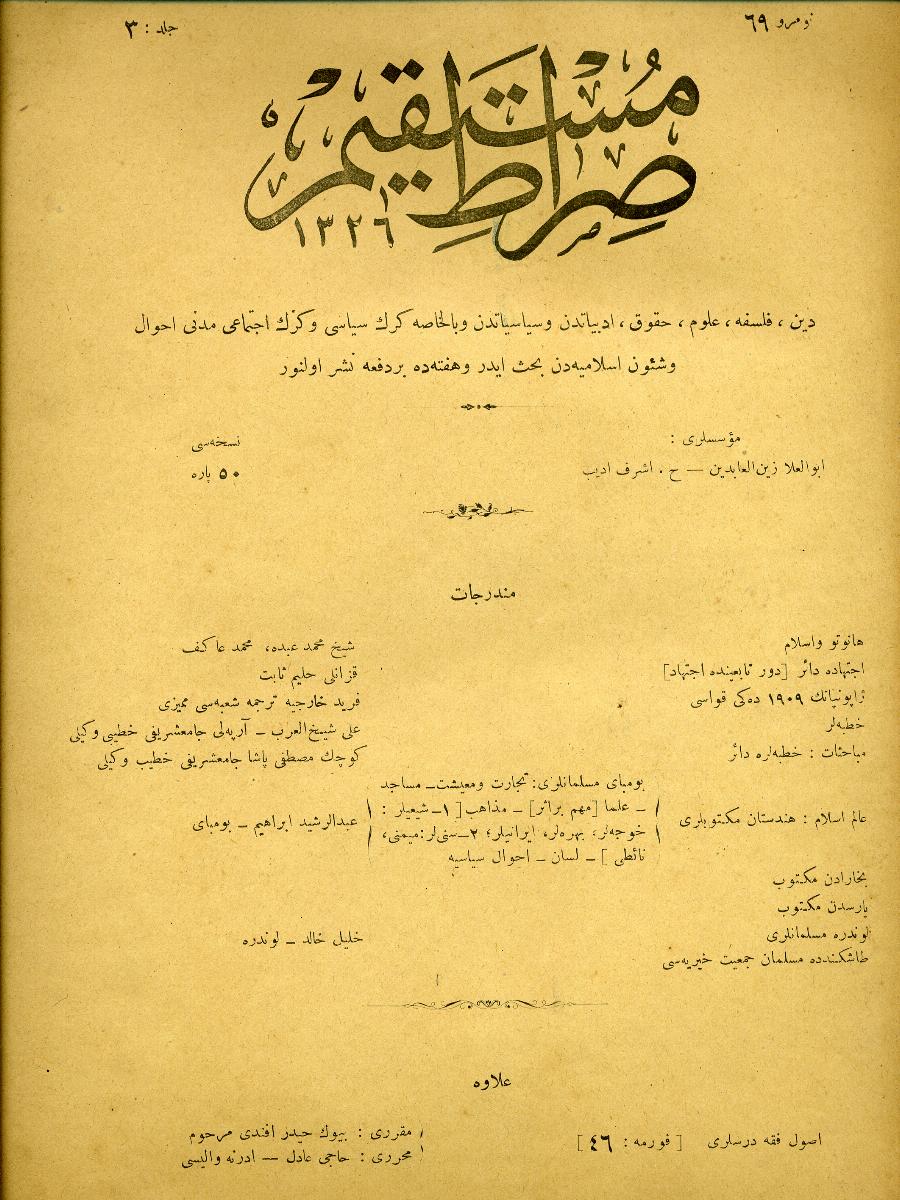 نومرو ٦٩
جلد : ٣
صراط مستقيم
١٣٢٦
دين ، فلسفه ، علوم ، حقوق ، ادبياتدن وسياسياتدن وبالخاصه كرك سياسى وكرك اجتماعى مدنى احوال
وشئون اسلاميه‌دن بحث ايدر وهفته‌ده بردفعه نشر اولنور
مؤسسلرى :
نسخه‌سى
ابوالعلا زين‌العابدين — ح . اشرف اديب
٥٠ پاره
مندرجات
هانوتو واسلام
شيخ محمد عبده، محمد عاكف
اجتهاده دائر [دور تابعينده اجتهاد]
قزانلى حليم ثابت
ژاپونيانك ١٩٠٩ ده‌كى قواسى
فريد خارجيه ترجمه شعبه‌سى مميزى
خطبه‌لر
على شيخ‌العرب ـ آرپه‌لى جامعشريفى خطيبى وكيلى
مباحثات : خطبه‌لره دائر
كوچك مصطفى پاشا جامعشريفى خطيب وكيلى
عالم اسلام : هندستان مكتوبلرى
بومباى مسلمانلرى: تجارت ومعيشت ـ مساجد
ـ علما [مهم براثر] ـ مذاهب [ ١ـ شيعيلر :
خوجه‌لر، بهره‌لر، ايرانيلر؛ ٢ـ سنى‌لر: ميمنى،
نائطى ] ـ لسان ـ احوال سياسيه
عبدالرشيد ابراهيم ـ بومباى
بخارادن مكتوب
پارسدن مكتوب
لوندره مسلمانلرى
خليل خالد ـ لوندره
طاشكندده مسلمان جمعيت خيريه‌سى
علاوه
اصول فقه درسلرى [ فورمه : ٤٦ ]
مقررى : بيوك حيدر افندى مرحوم
محررى : حاجى عادل — ادرنه واليسى